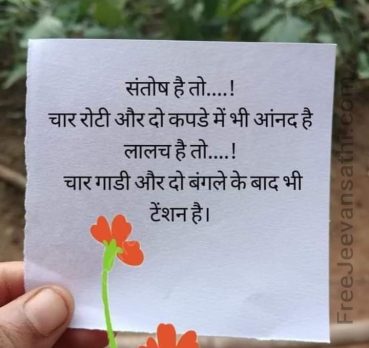 संतोष है तो....!
चार रोटी और दो कपडे में भी आंनद है
लालच है तो....!
चार गाडी और दो बंगले के बाद भी
टेंशन है।
FreeJeevansathi.com